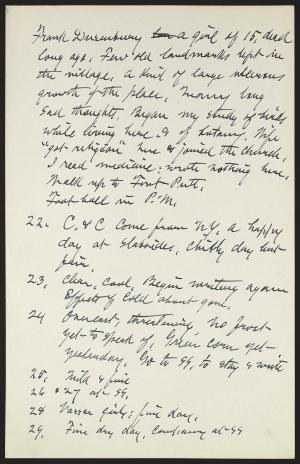 Frank Dusenbury — a girl of 15, dead
long ago. Few old landmarks left in
the village, a kind of large
growth of the place. Many long
sad thoughts. Began my study of birds
while living here & of botany. Wife
"got religion" here & joined the church,
I read medicine; wrote nothing here,
Walk up to Fort Putt.
Foot-ball in P.M.
22. C. & C come from N.Y. a happy
day at Slabsides, chilly day but
fair.
23. Clear, Cool, Begin writing again
Effects of Cold about gone.
24 Overcast, threatening, no frost
yet to speak of, Green corn yet
yesterday. Go to SS. to stay & write
25. Mild & fine
26 & 27 at SS.
28 Vassar girls; fine day.
29. Fine dry day, Company at SS